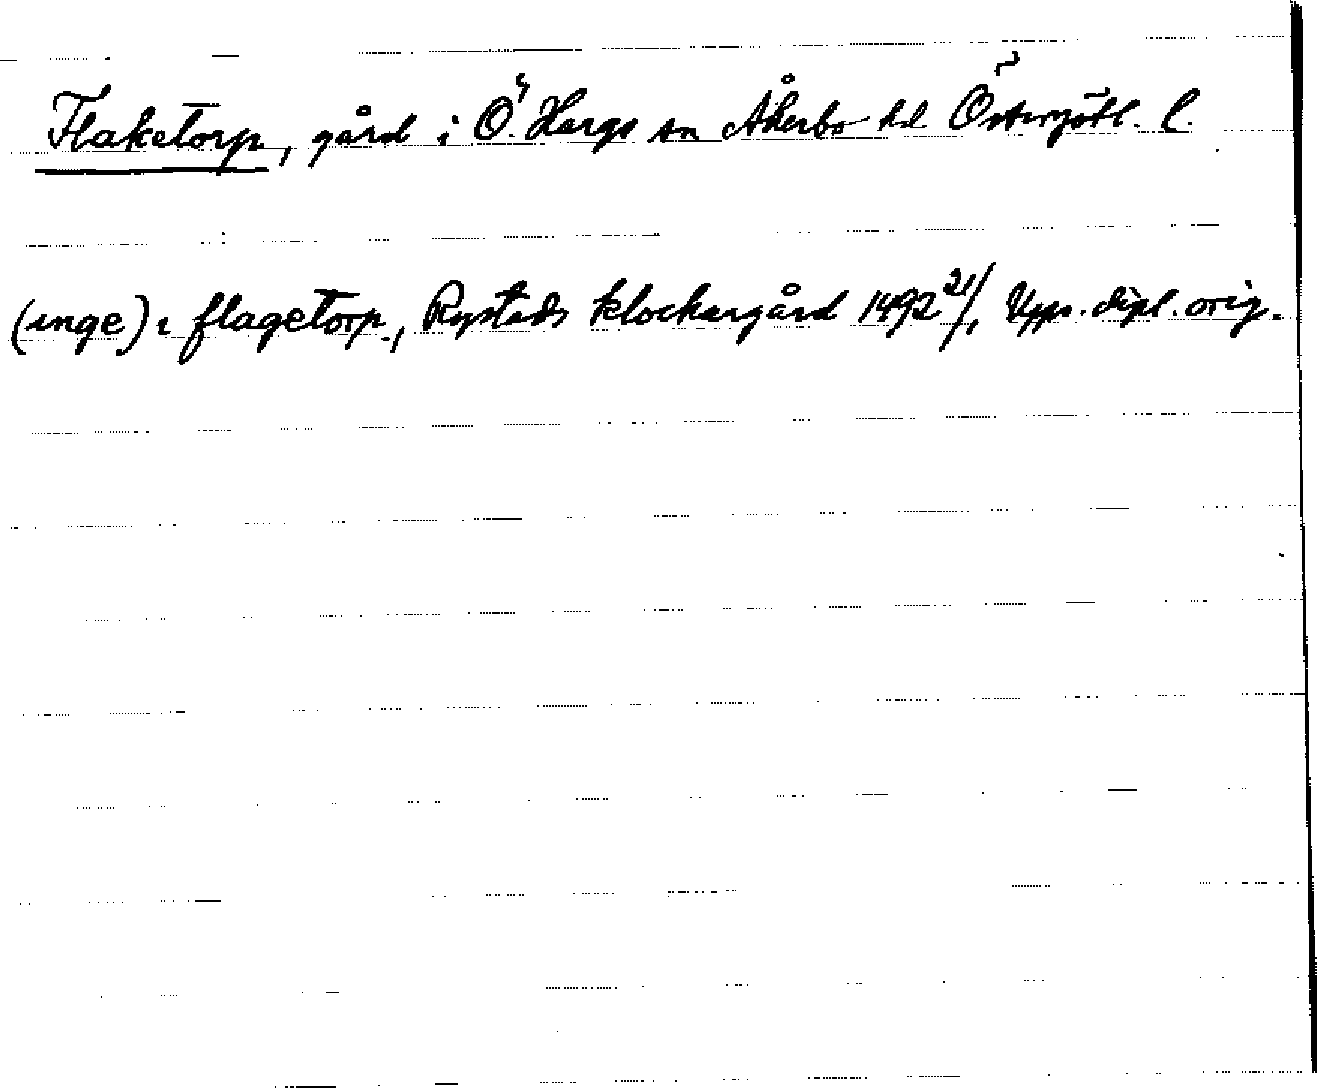 Flaketorp, gård i Ö. Hargs sn Åkerbo hd Östergötl. l.
(inge) i flagetorp, Rystads klockargård 1492 21/1, Upps. dipl. orig.